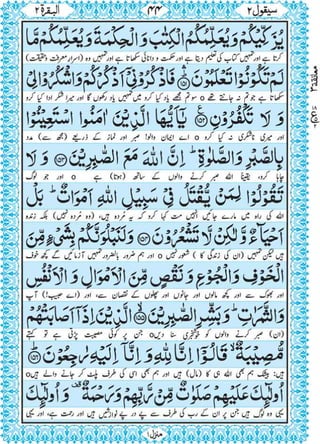 سیقول ٢ ٤٤ البقرة ٢
يُزَكِّيْكُمْ وَيُعَلِّمُكُمُ الْكِتٰبَ وَالْحِكْمَةَ وَيُعَلِّمُكُمْ مَّا
کرتا ہے اور تمہیں کتاب کی تعلیم دیتا ہے اور حکمت و دانائی سکھاتا ہے اور تمہیں وہ (اسرارِ معرفت و حقیقت)
لَمْ تَكُوْنُوْا تَعْلَمُوْنَ ﴿١٥١﴾ فَاذْكُرُوْنِيْۤ اَذْكُرْكُمْ وَاشْكُرُوْا لِيْ
سکھاتا ہے جو تم نہ جانتے تھے o سو تم مجھے یاد کیا کرو میں تمہیں یاد رکھوں گا اور میرا شکر ادا کیا کرو
وَ لَا تَكْفُرُوْنِ ﴿١٥٢﴾ يٰۤاَيُّهَا الَّذِيْنَ اٰمَنُوا اسْتَعِيْنُوْا
اور میری ناشکری نہ کیا کرو o اے ایمان والو! صبر اور نماز کے ذریعے (مجھ سے) مدد
بِالصَّبْرِ وَالصَّلٰوةِ ؕ اِنَّ اللّٰهَ مَعَ الصّٰبِرِيْنَ ﴿١٥٣﴾ وَ لَا
چاہا کرو، یقیناً اللہ صبر کرنے والوں کے ساتھ (ہوتا) ہے o اور جو لوگ
تَقُوْلُوْا لِمَنْ يُّقْتَلُ فِيْ سَبِيْلِ اللّٰهِ اَمْوَاتٌ ؕ بَلْ
اللہ کی راہ میں مارے جائیں انہیں مت کہا کرو کہ یہ مُردہ ہیں، (وہ مُردہ نہیں) بلکہ زندہ
اَحْيَآءٌ وَّلٰكِنْ لَّا تَشْعُرُوْنَ ﴿١٥٤﴾ وَلَنَبْلُوَنَّكُمْ بِشَيْءٍ مِّنَ
ہیں لیکن تمہیں (ان کی زندگی کا) شعور نہیں o اور ہم ضرور بالضرور تمہیں آزمائیں گے کچھ خوف
الْخَوْفِ وَالْجُوْعِ وَ نَقْصٍ مِّنَ الْاَمْوَالِ وَ الْاَنْفُسِ
اور بھوک سے اور کچھ مالوں اور جانوں اور پھلوں کے نقصان سے، اور (اے حبیب!) آپ
وَالثَّمَرٰتِ ؕ وَبَشِّرِ الصّٰبِرِيْنَ ﴿١٥٥﴾ الَّذِيْنَ اِذَاۤ اَصَابَتْهُمْ
(ان) صبر کرنے والوں کو خوشخبری سنا دیں o جن پر کوئی مصیبت پڑتی ہے تو کہتے
مُّصِيْبَةٌ ۙ قَالُوْۤا اِنَّا لِلّٰهِ وَ اِنَّاۤ اِلَيْهِ رٰجِعُوْنَ ﴿١٥٦﴾
ہیں: بیشک ہم بھی اللہ ہی کا (مال) ہیں اور ہم بھی اسی کی طرف پلٹ کر جانے والے ہیں o
اُولٰٓئِكَ عَلَيْهِمْ صَلَوٰتٌ مِّنْ رَّبِّهِمْ وَرَحْمَةٌ ۟ وَ اُولٰٓئِكَ
یہی وہ لوگ ہیں جن پر ان کے رب کی طرف سے پے در پے نوازشیں ہیں اور رحمت ہے، اور یہی
منزل ١